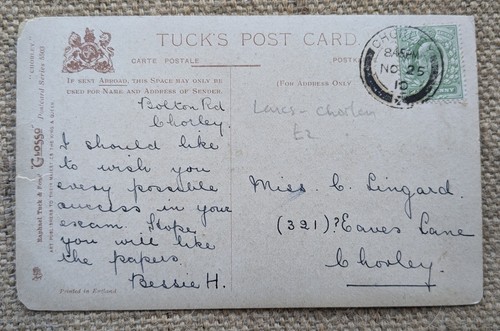 TUCK'S POST CARD
CARTE POSTALE
POSTK
IF SENT ABROAD, THIS SPACE MAY ONLY BE
USED FOR NAME AND ADDRESS OF SENDER.
(FOR ADDRESS ONLY
CHORLEY
8.45PM
NO 25
10
"CHORLEY"
Postcard Series
"GLOSSO"
Raphael Tuck & Sons'
ART PUBLISHERS TO THEIR MAJESTIES THE KING & QUEEN.
Printed in England
Bolton Rd
Chorley.
I should like
to wish you
every possible
success in your
exam. Hope
you will like
the papers.
Bessie H.
Lancs - Chorley
£2
Miss. C. Lingard.
(321)? Eaves Lane
Chorley.